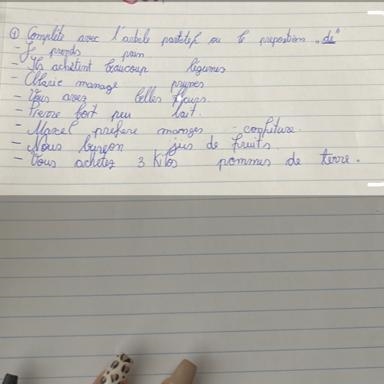 ① Complète avec l'article partitif ou le preposition „de"
- Je prends pain
- Ils achetent beaucoup légumes
- Marie manage prunes
- Vous avez belles fleurs.
- Pierre boit peu lait.
- Marcel préfere manger confiture.
- Nous buvson jus de fruits
- Vous achetez 3 kilos pommes de terre.